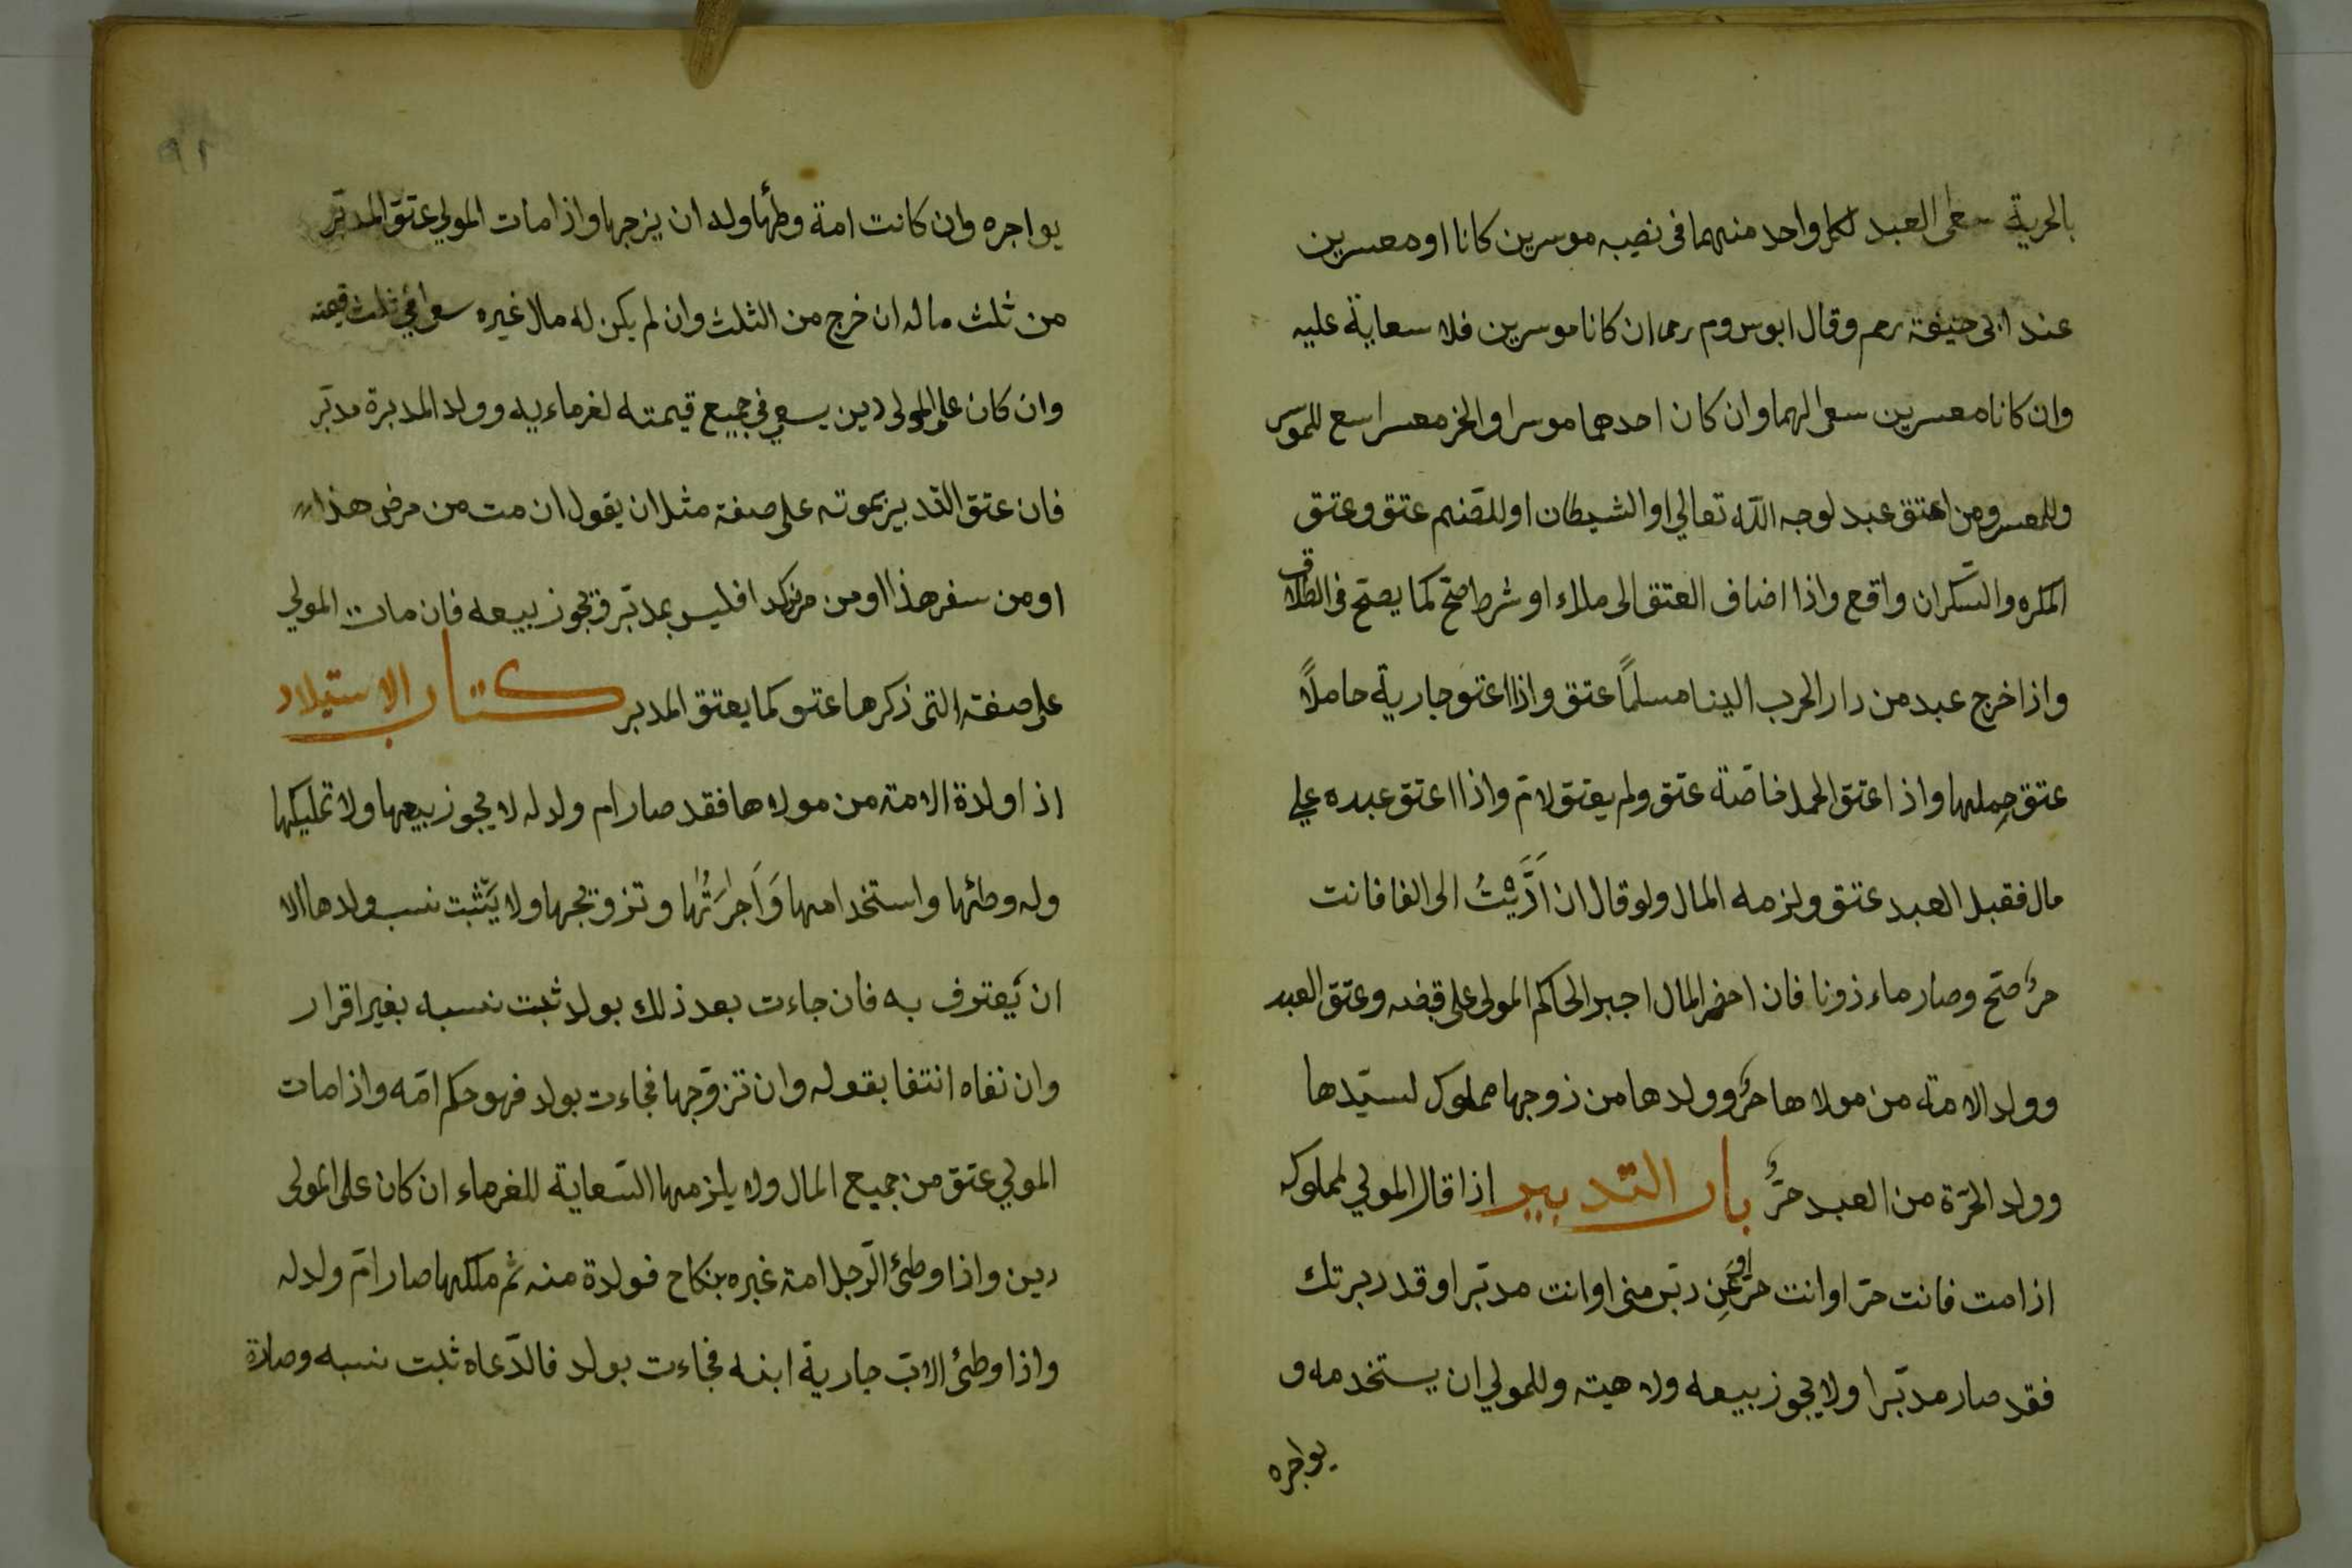 بالحرية سعى العبد لكل واحد منهما فى نصيبه موسرين كانا او معسرين
عند ابى حنيفة رحم وقال ابو س وم رحما ان كانا موسرين فلا سعاية عليه
وان كانا معسرين سعى لهما وان كان احدهما موسرا والاخر معسرا سع للموسر
وللمعسر ومن اعتق عبد لوجه الله تعالي او الشيطان او للصّنم عتق وعتق
المكره والسّكران واقع واذا اضاف العتق الى ملاء او شرط صحّ كما يصحّ فى الطلاق
واذا خرج عبد من دار الحرب الينا مسلمًا عتق واذا اعتق جارية حاملًا
عتق حِملها واذ اعتق الحمل خاصّة عتق ولم يعتق لامّ واذا اعتق عبده علي
مال فقبل العبد عتق ولزمه المال ولو قال ان اَدَّيْتُ الى الفا فانت
حرٌ صحّ وصار ماء ذونا فان احضر المال اجبر الحاكم المولى على قبضه وعتق العبد
وولد الامة من مولاها حرٌّ وولدها من زوجها مملوك لسيّدها
وولد الحرّة من العبد حرٌّ باب التدبير اذا قال المولي لمملوكه
اذا مت فانت حرّ او انت حرّ او عَنِ دبّر منى او انت مدبّر او قد دبرتك
فقد صار مدبّرا ولا يجوز بيعه ولا هبته وللمولي ان يستخدمه و
يواجره
٩٢
يواجره وان كانت امة وطئها وله ان يزوجها واذا مات المولي عتق المدبّر
من ثلث ماله ان خرج من الثلث وان لم يكن له مال غيره سعى فى ثلث قيمته
وان كان على المولى دين يسعي فى جميع قيمته لغرماءيه وولد المدبرة مدبّر
فان عتق التّدبير بموته على صفة مثل ان يقول ان مت من مرض هذا
او من سفر هذا او من مرض كذا فليس بمدبّر ويجوز بيعه فان مات المولي
على صفته التى ذكرها عتق كما يعتق المدبر كتاب الاستيلاد
اذا ولدة الامة من مولاها فقد صار ام ولد له لا يجوز بيعها ولا تمليكها
وله وطئها واستخدامها وَاَجرَتُها وتزويجها ولا يَثبت نسب ولدها الا
ان يَعترف به فان جاءت بعد ذلك بولد ثبت نسبه بغير اقرار
وان نفاه انتفا بقوله وان تزوّجها فجاءت بولد فهو حكم امّه واذا مات
المولي عتق من جميع المال ولا يلزمها السّعاية للغرماء ان كان على المولى
دين واذا وطئ الرّجل امة غيره بنكاح فولدة منه ثم ملكها صار امّ ولد له
واذا وطئ الابّ جارية ابنه فجاءت بولد فالدّعاه ثبت نسبه وصارة